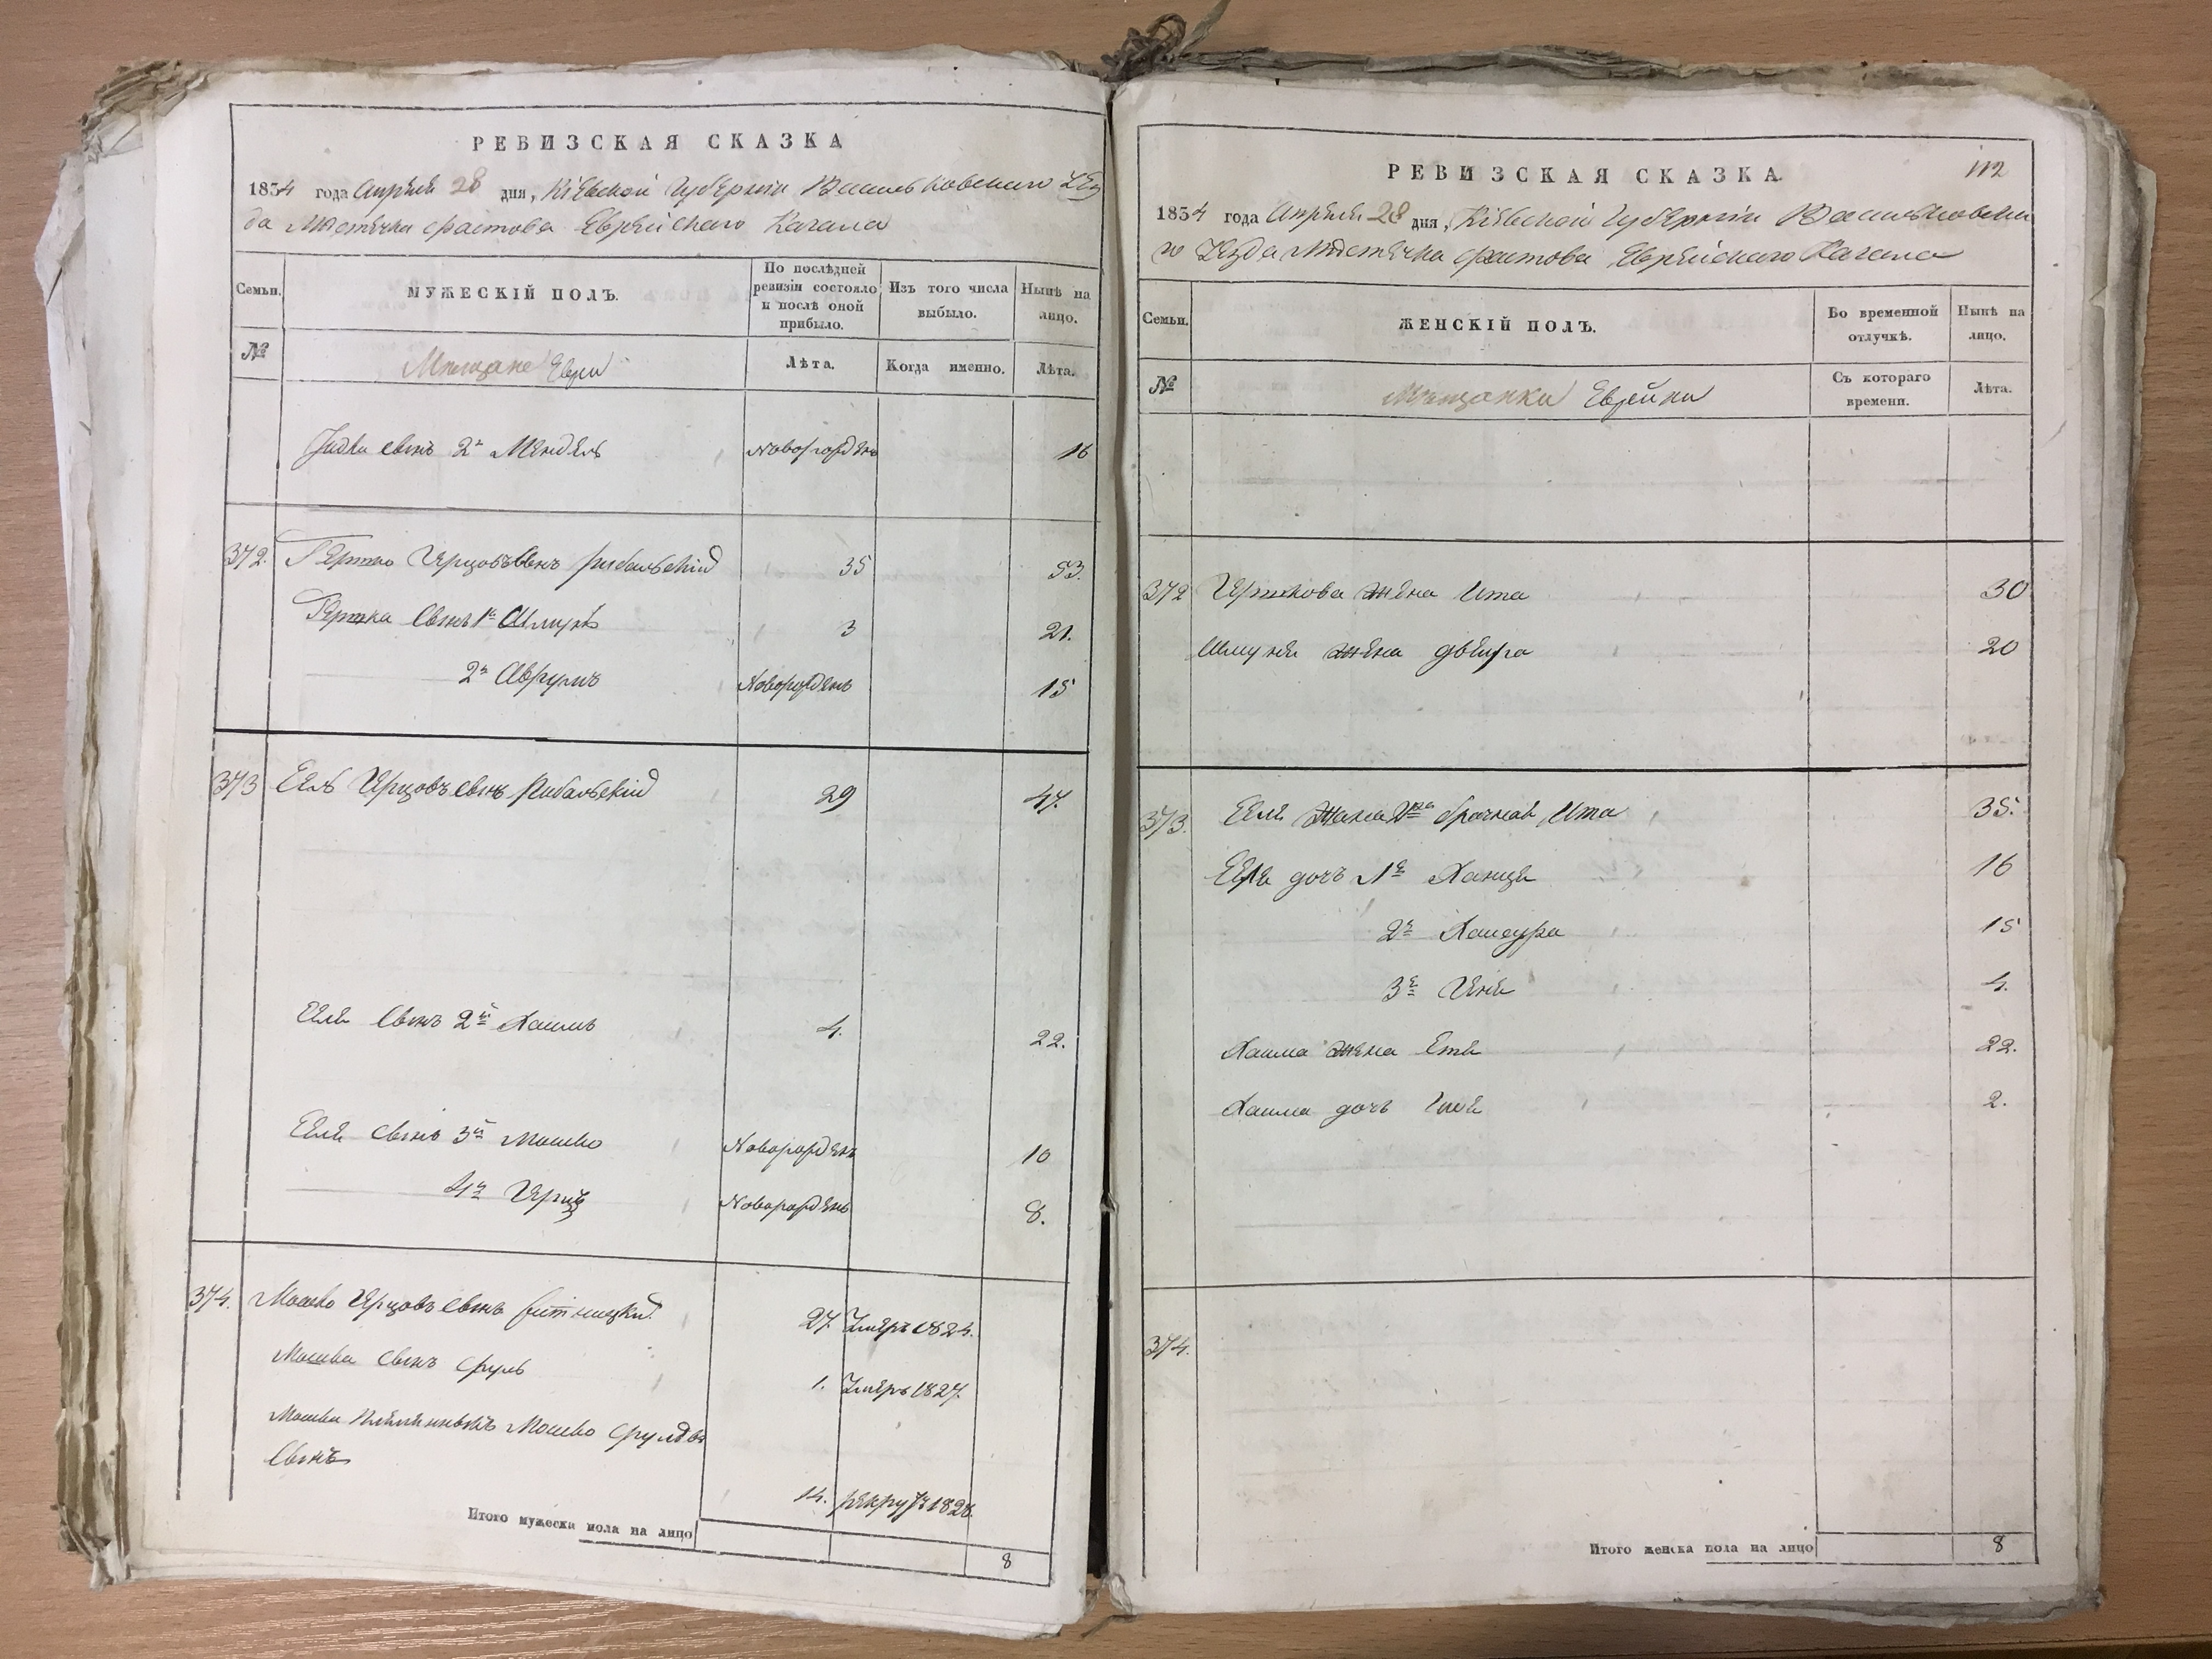 РЕВИЗСКАЯ СКАЗКА
1834 года Апреля 28 дня, Кіевской Губерніи Васильковского Уез
да Местечка Фастова Еврейского Кагала
Семьи.
МУЖЕСКІЙ ПОЛЪ.
По послѣдней ревизіи состояло и послѣ оной прибыло.
Изъ того числа выбыло.
Нынѣ на лицо.
№
Мещане Евреи
Лѣта.
Когда именно.
Лѣта.
сынъ 2й Мендель Новорожденъ 16
372. Гершко Герцовъ сынъ Рибальскій 35 53.
Гершка сынъ 1й Шмуль 3 21.
2й Аврумъ Новорожденъ 15
373 Еель Герцовъ сынъ Рибальскій 29 47.
Ееля сынъ 2й Хаимъ 4. 22.
Ееля сынъ 3й Мошко Новорожденъ 10
4й Герцъ Новорожденъ 8.
374. Мошко Герцовъ сынъ 27. Умеръ 1824.
Мошка сынъ Сруль 1. Умеръ 1827.
Мошка племянникъ Мошко Срулевъ
сынъ
14. рекрутъ 1828.
Итого мужеска пола на лицо 8
РЕВИЗСКАЯ СКАЗКА.
112
1834 года Апреля 28 дня, Кіевской Губерніи Васильковска
го Уезда Местечка Фастова Еврейского Кагала
Семьи.
ЖЕНСКІЙ ПОЛЪ.
Во временной отлучкѣ.
Нынѣ на лицо.
№
Мещанки Еврейки
Съ котораго времени.
Лѣта.
372 Гершкова жена Ита 30
Шмуля жена Двейра 20
373. Ееля жена брачная Ита 35.
Ееля дочь 1я Ханця 16
2я 15
3я Геня 4.
Хаима жена Етя 22.
Хаима дочь 2.
374.
Итого женска пола на лицо 8